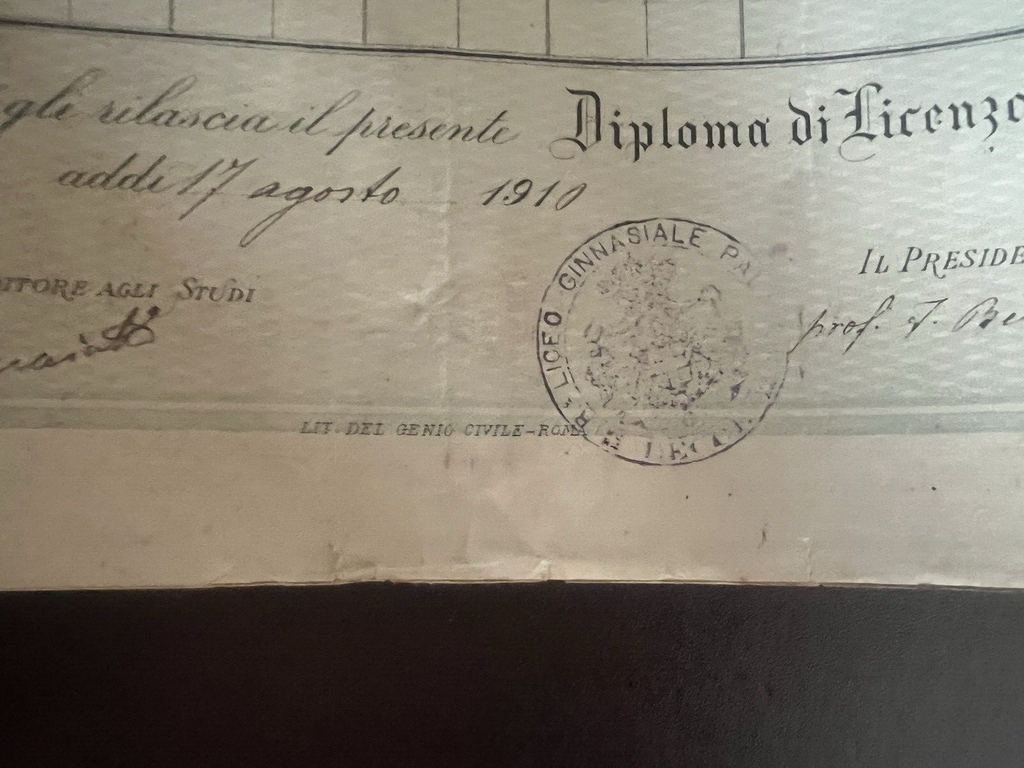 gli rilascia il presente Diploma di Licenza
addì 17 agosto 1910
LICEO GINNASIALE PAL
LECCE
ITORE AGLI STUDI
IL PRESIDE
prof. F. Be
LIT. DEL GENIO CIVILE-ROMA